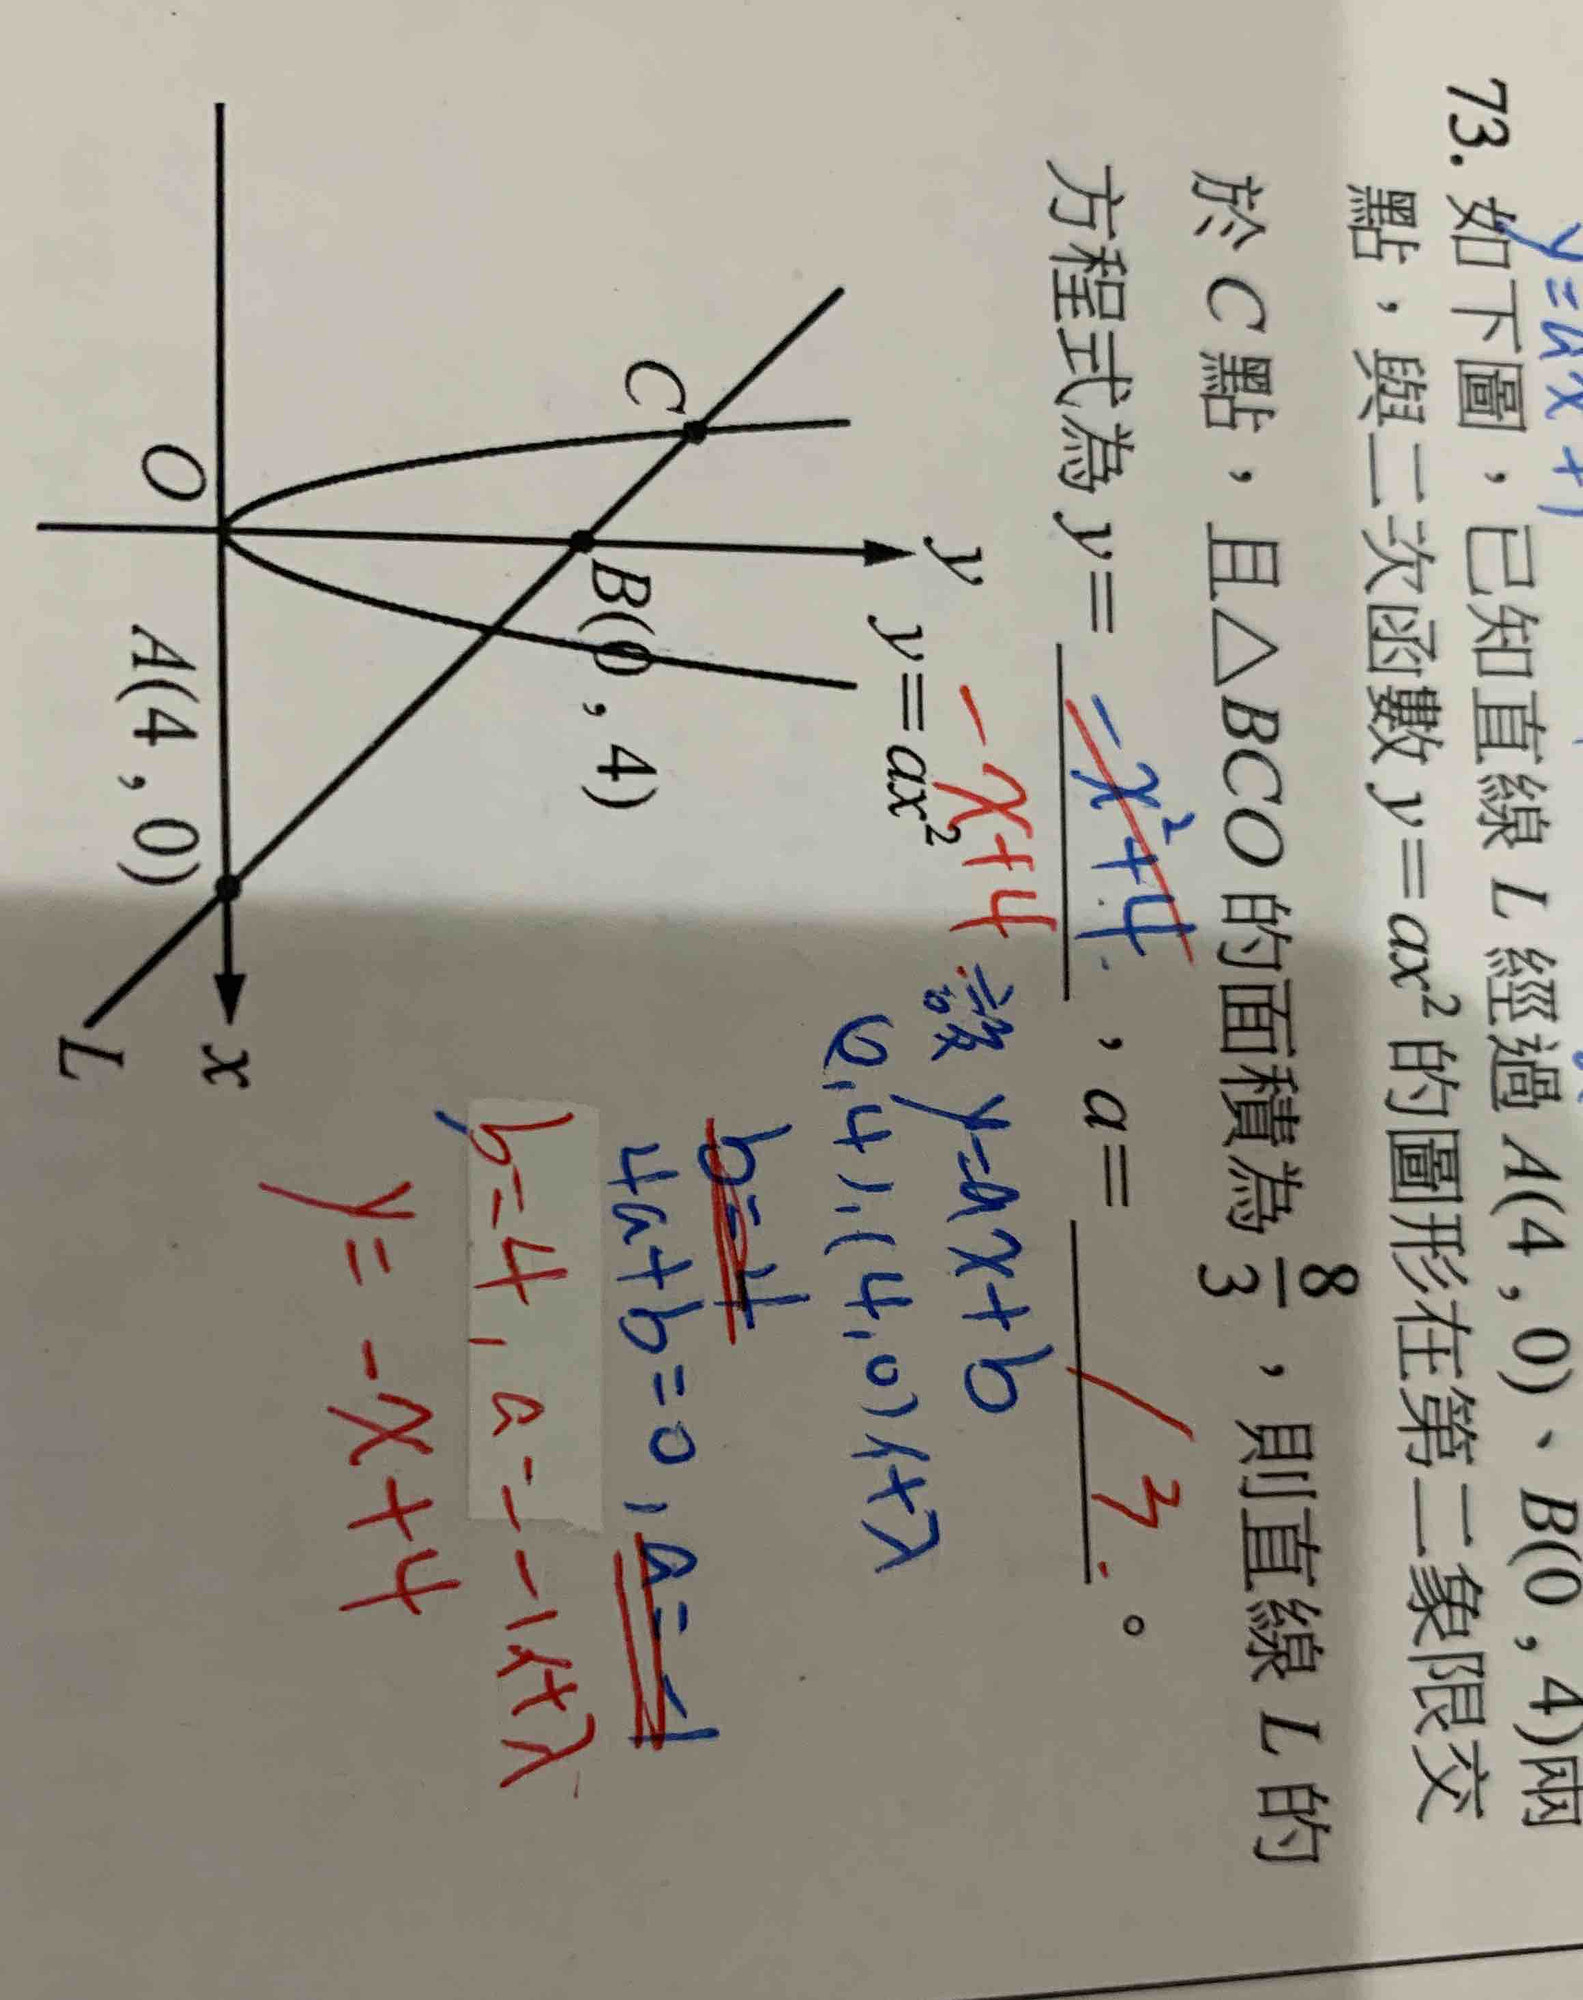 y=ax+
73. 如下圖，已知直線 L 經過 A(4 , 0)、B(0 , 4)兩
點，與二次函數 y=ax² 的圖形在第二象限交
於 C 點，且△BCO 的面積為 8/3，則直線 L 的
方程式為 y= -x²+4 ，a= 3 。
-x+4
設 y=ax+b
0,4),(4,0)代入
b=4
4a+b=0, a=-1
b=4, a=-1代入
y=-x+4
y
y=ax²
C
B(0 , 4)
O
A(4 , 0)
x
L